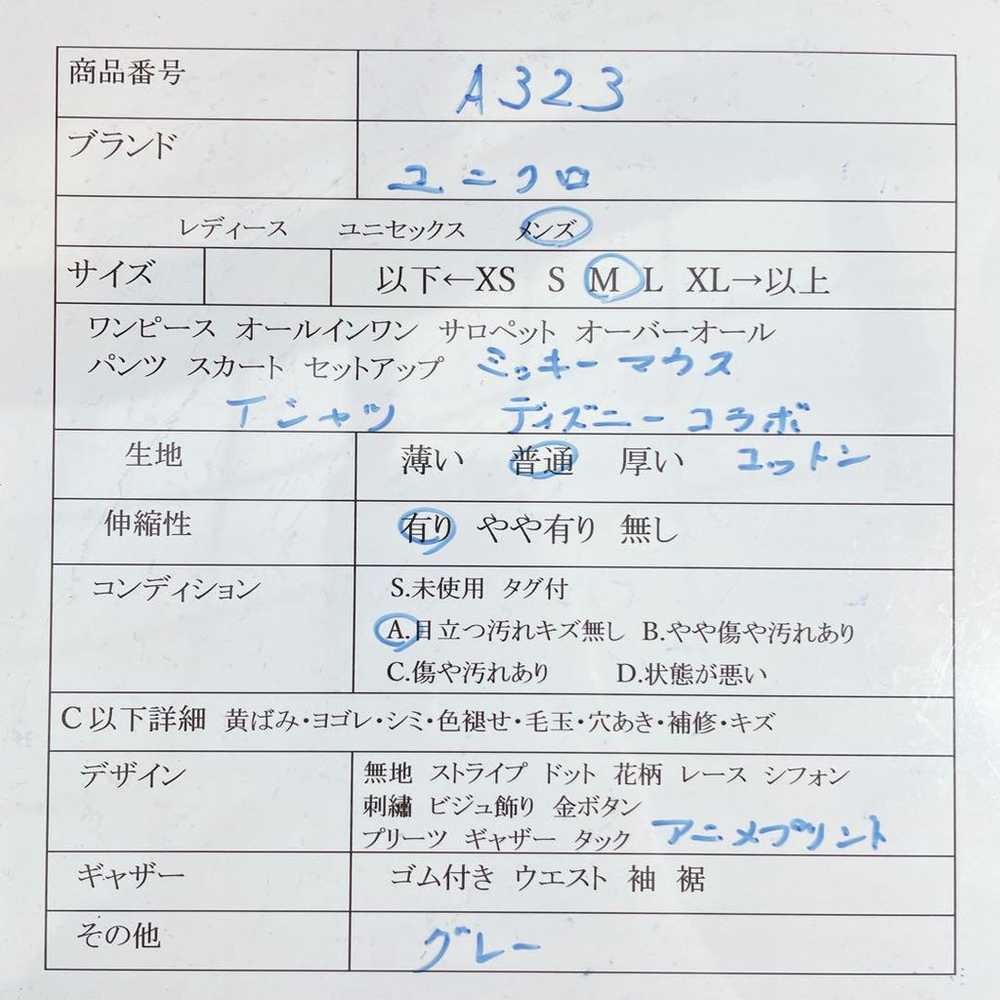 商品番号 A323
ブランド ユニクロ
レディース ユニセックス メンズ
サイズ 以下←XS S M L XL→以上
ワンピース オールインワン サロペット オーバーオール
パンツ スカート セットアップ ミッキーマウス
Tシャツ ディズニーコラボ
生地 薄い 普通 厚い コットン
伸縮性 有り やや有り 無し
コンディション S.未使用 タグ付
A.目立つ汚れキズ無し B.やや傷や汚れあり
C.傷や汚れあり D.状態が悪い
C以下詳細 黄ばみ・ヨゴレ・シミ・色褪せ・毛玉・穴あき・補修・キズ
デザイン 無地 ストライプ ドット 花柄 レース シフォン
刺繡 ビジュ飾り 金ボタン
プリーツ ギャザー タック アニメプリント
ギャザー ゴム付き ウエスト 袖 裾
その他 グレー